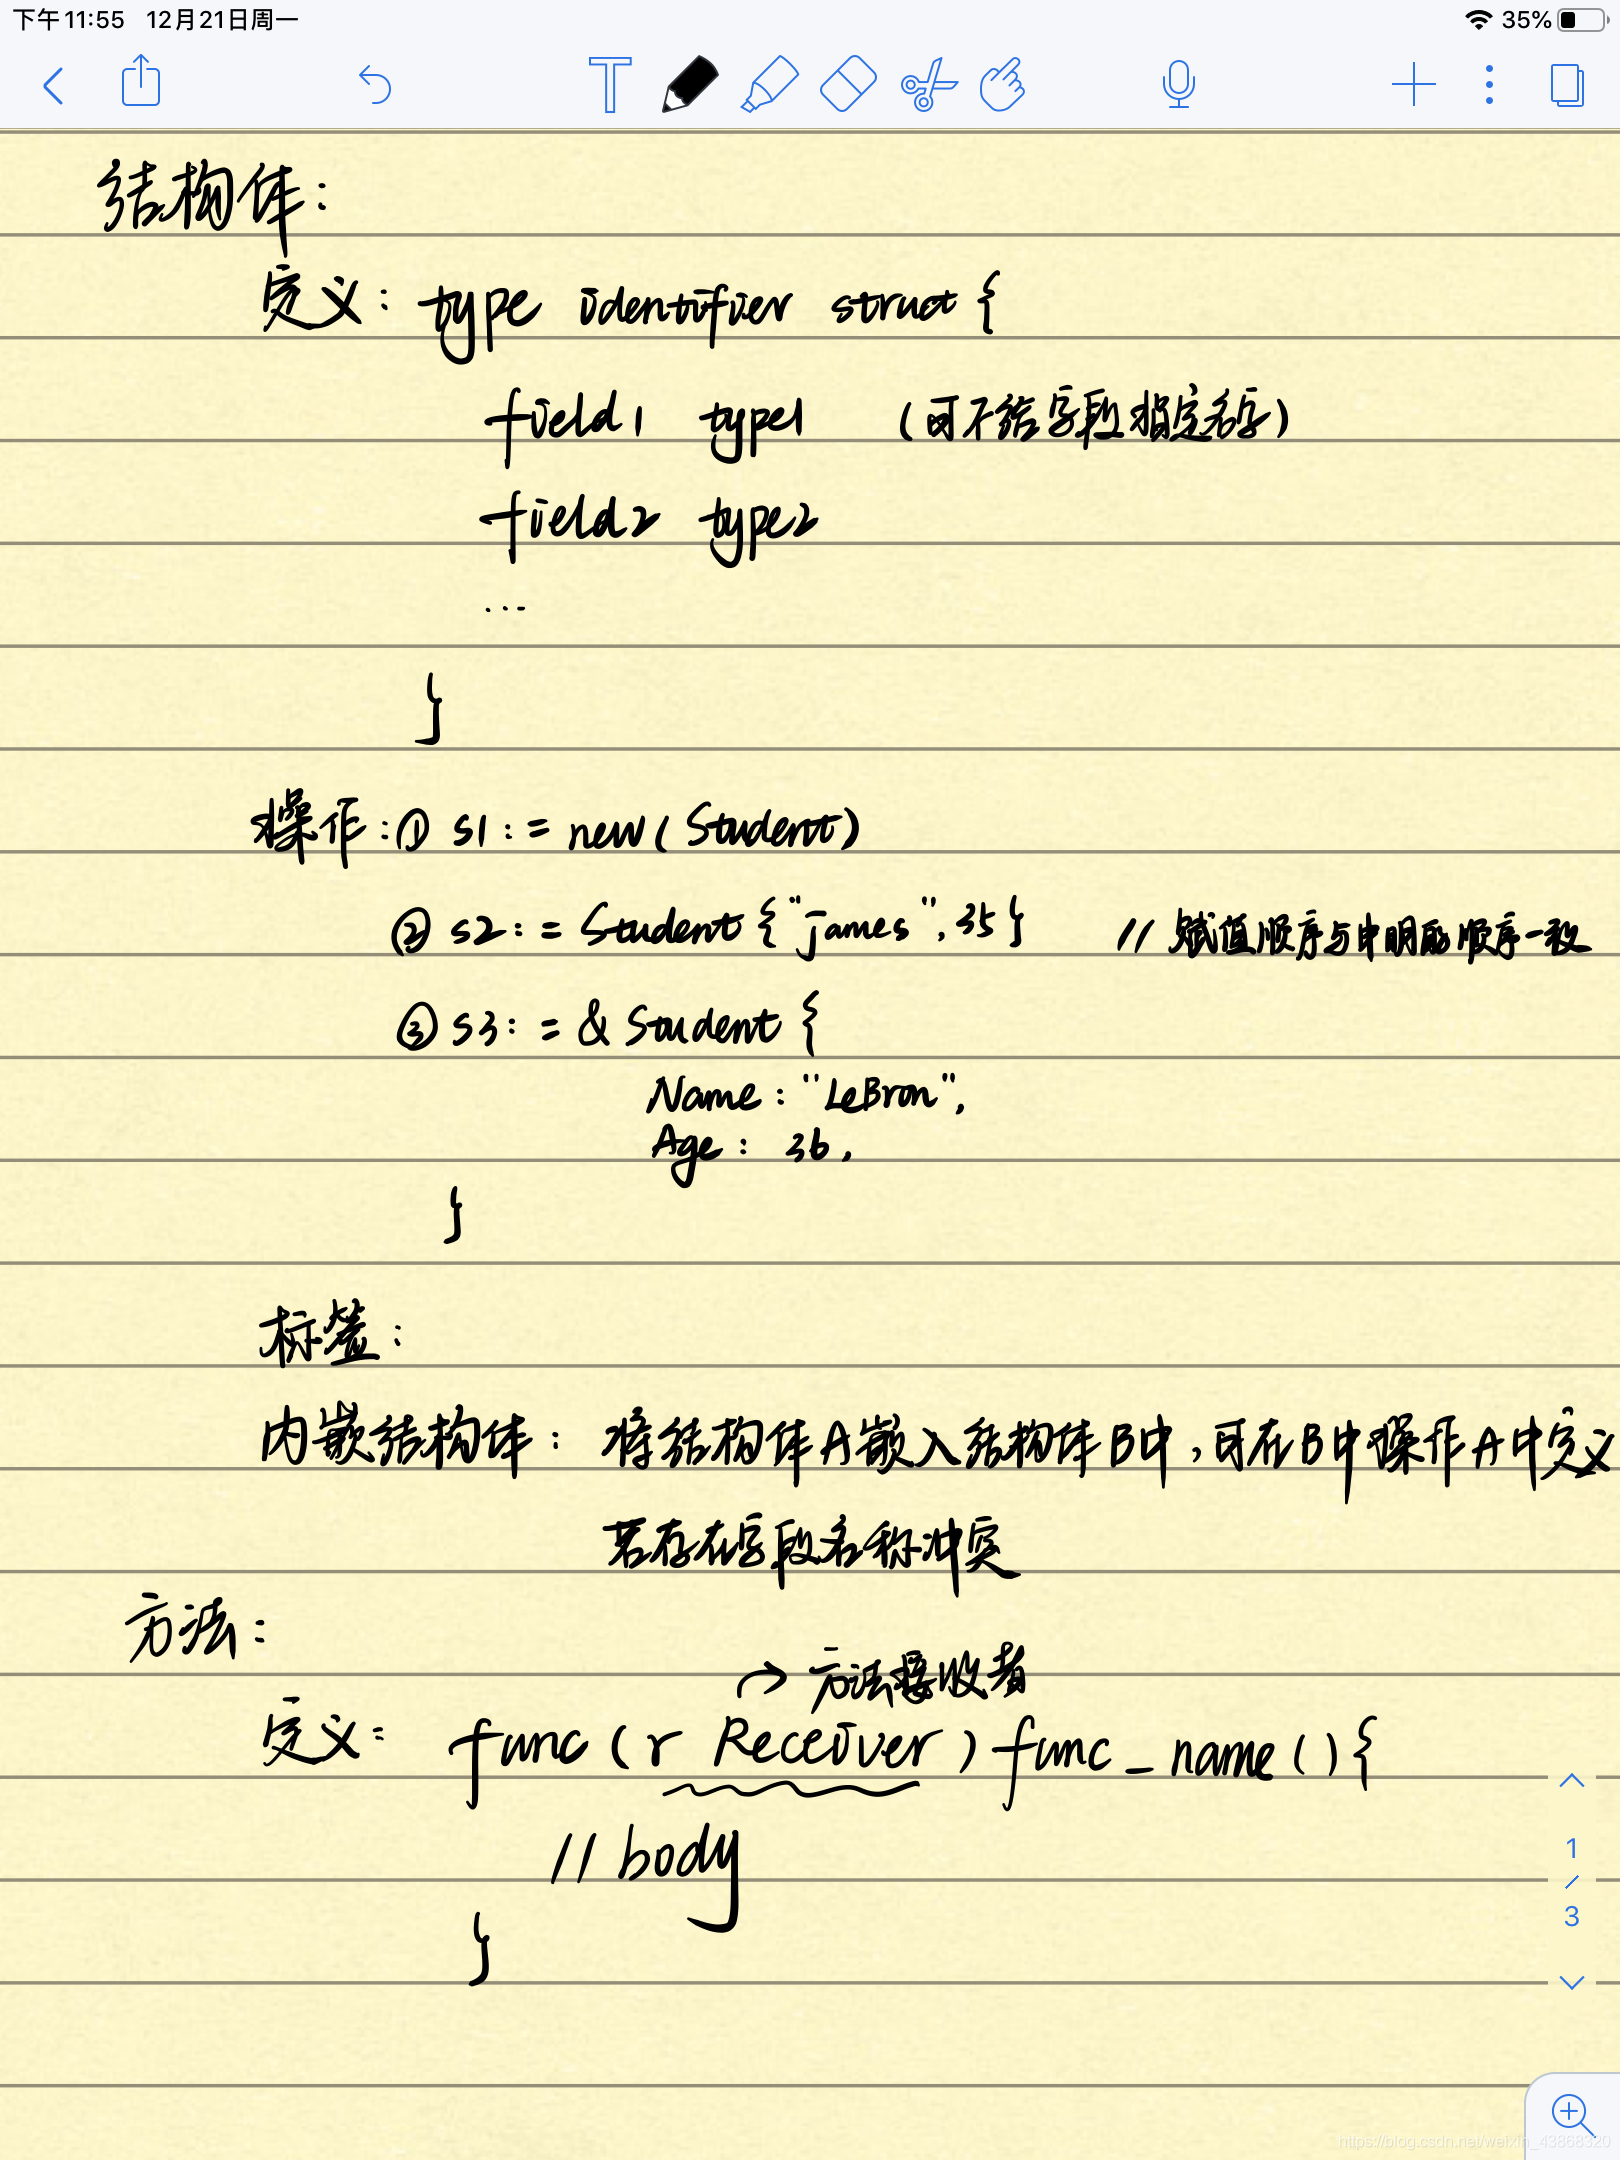 下午11:55 12月21日周一 35%
结构体:
定义: type identifier struct {
field1 type1 (可不给字段指定名字)
field2 type2
...
}
操作: ① s1 := new(Student)
② s2 := Student {"james", 35} // 赋值顺序与申明的顺序一致
③ s3 := & Student {
Name : "LeBron",
Age : 36,
}
标签:
内嵌结构体: 将结构体A嵌入结构体B中,可在B中操作A中定义
若存在字段名称冲突
方法:
→ 方法接收者
定义: func (r Receiver) func_name() {
// body
}
1
/
3
https://blog.csdn.net/weixin_43868320